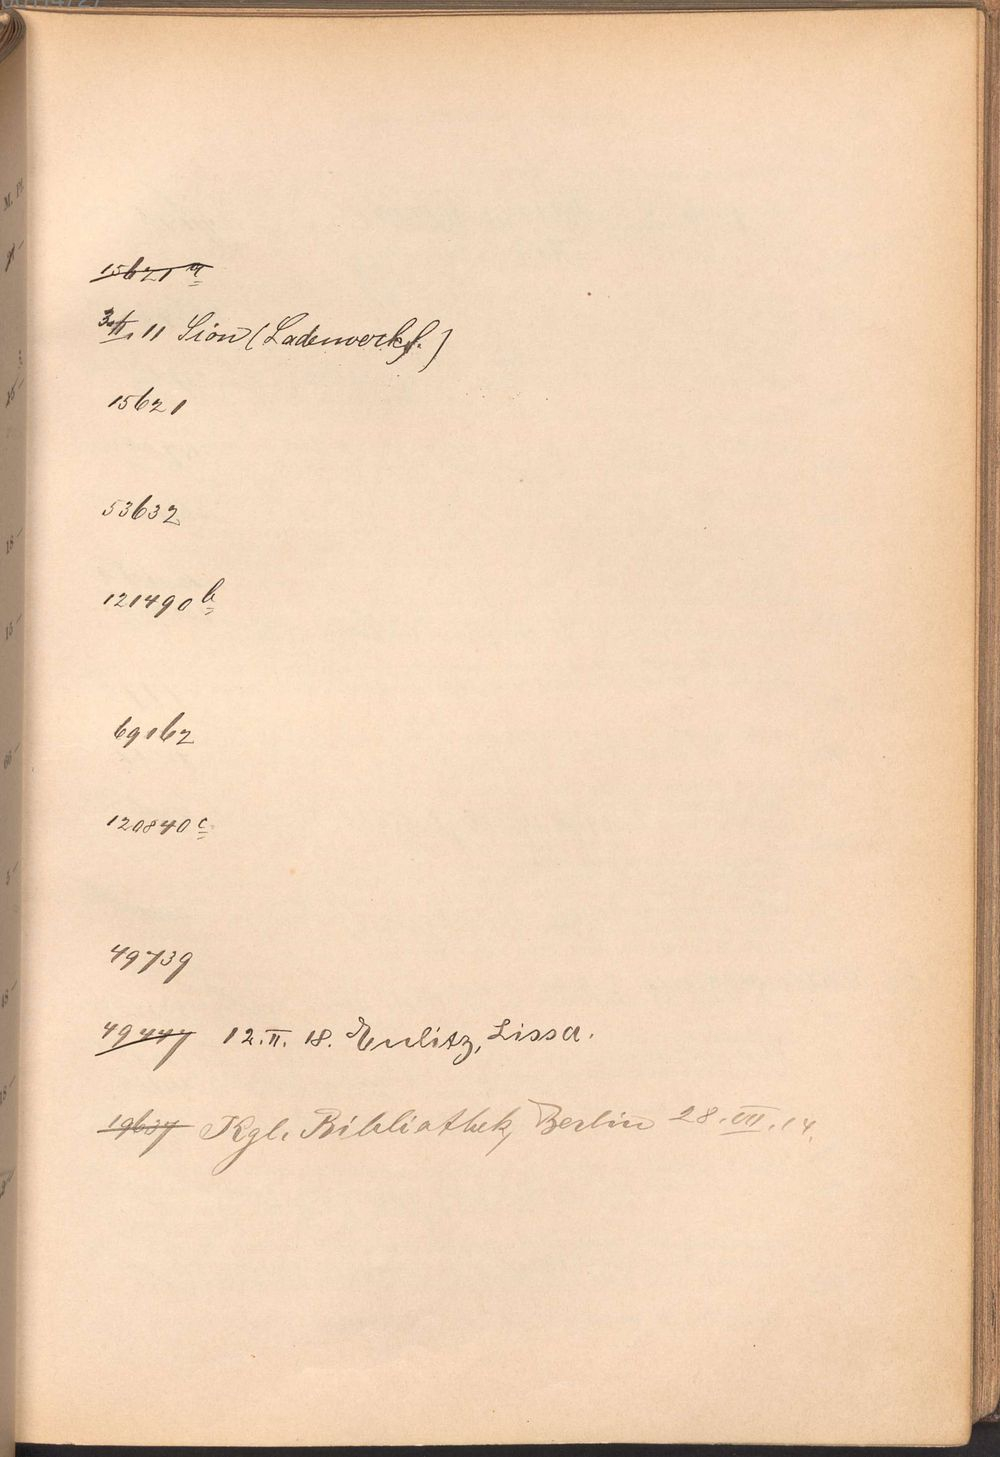 15621 a
30/II. 11 Sion (Ladenverkf.)
15621
53632
121490 b
69162
120840 c
49739
49447 12.II.18. Eulitz, Lissa.
19637 Kgl. Bibliothek, Berlin 28.VII.14.